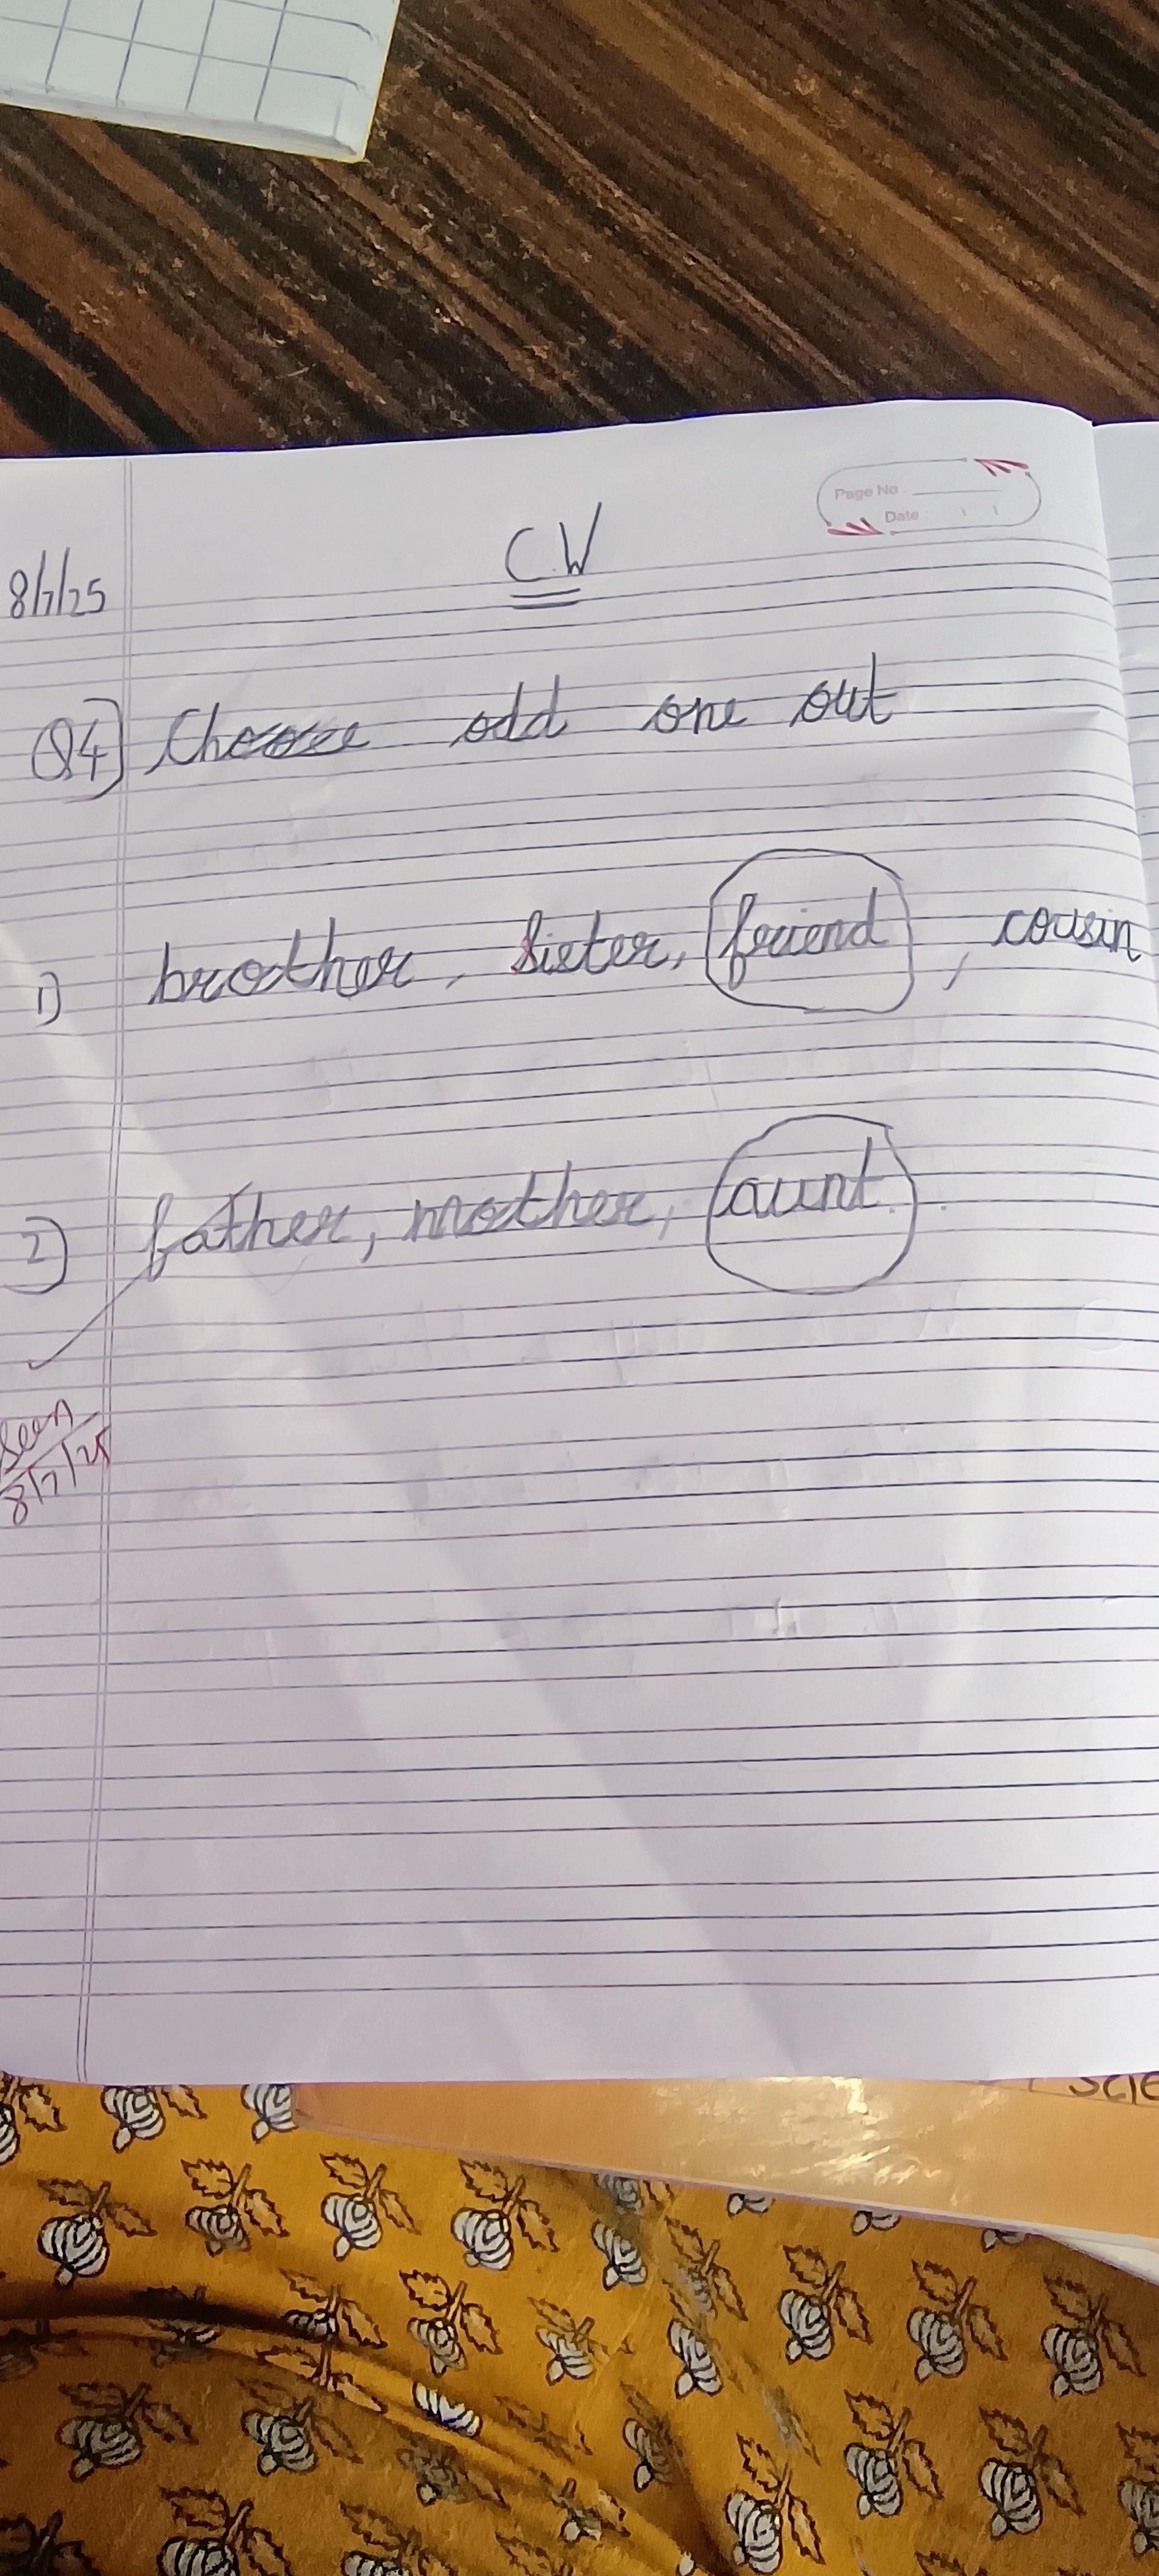 Page No
Date
C.W
8/7/25
Q4] Choose odd one out
1) brother, sister, friend, cousin
2) father, mother, aunt.
Seen
8/7/25